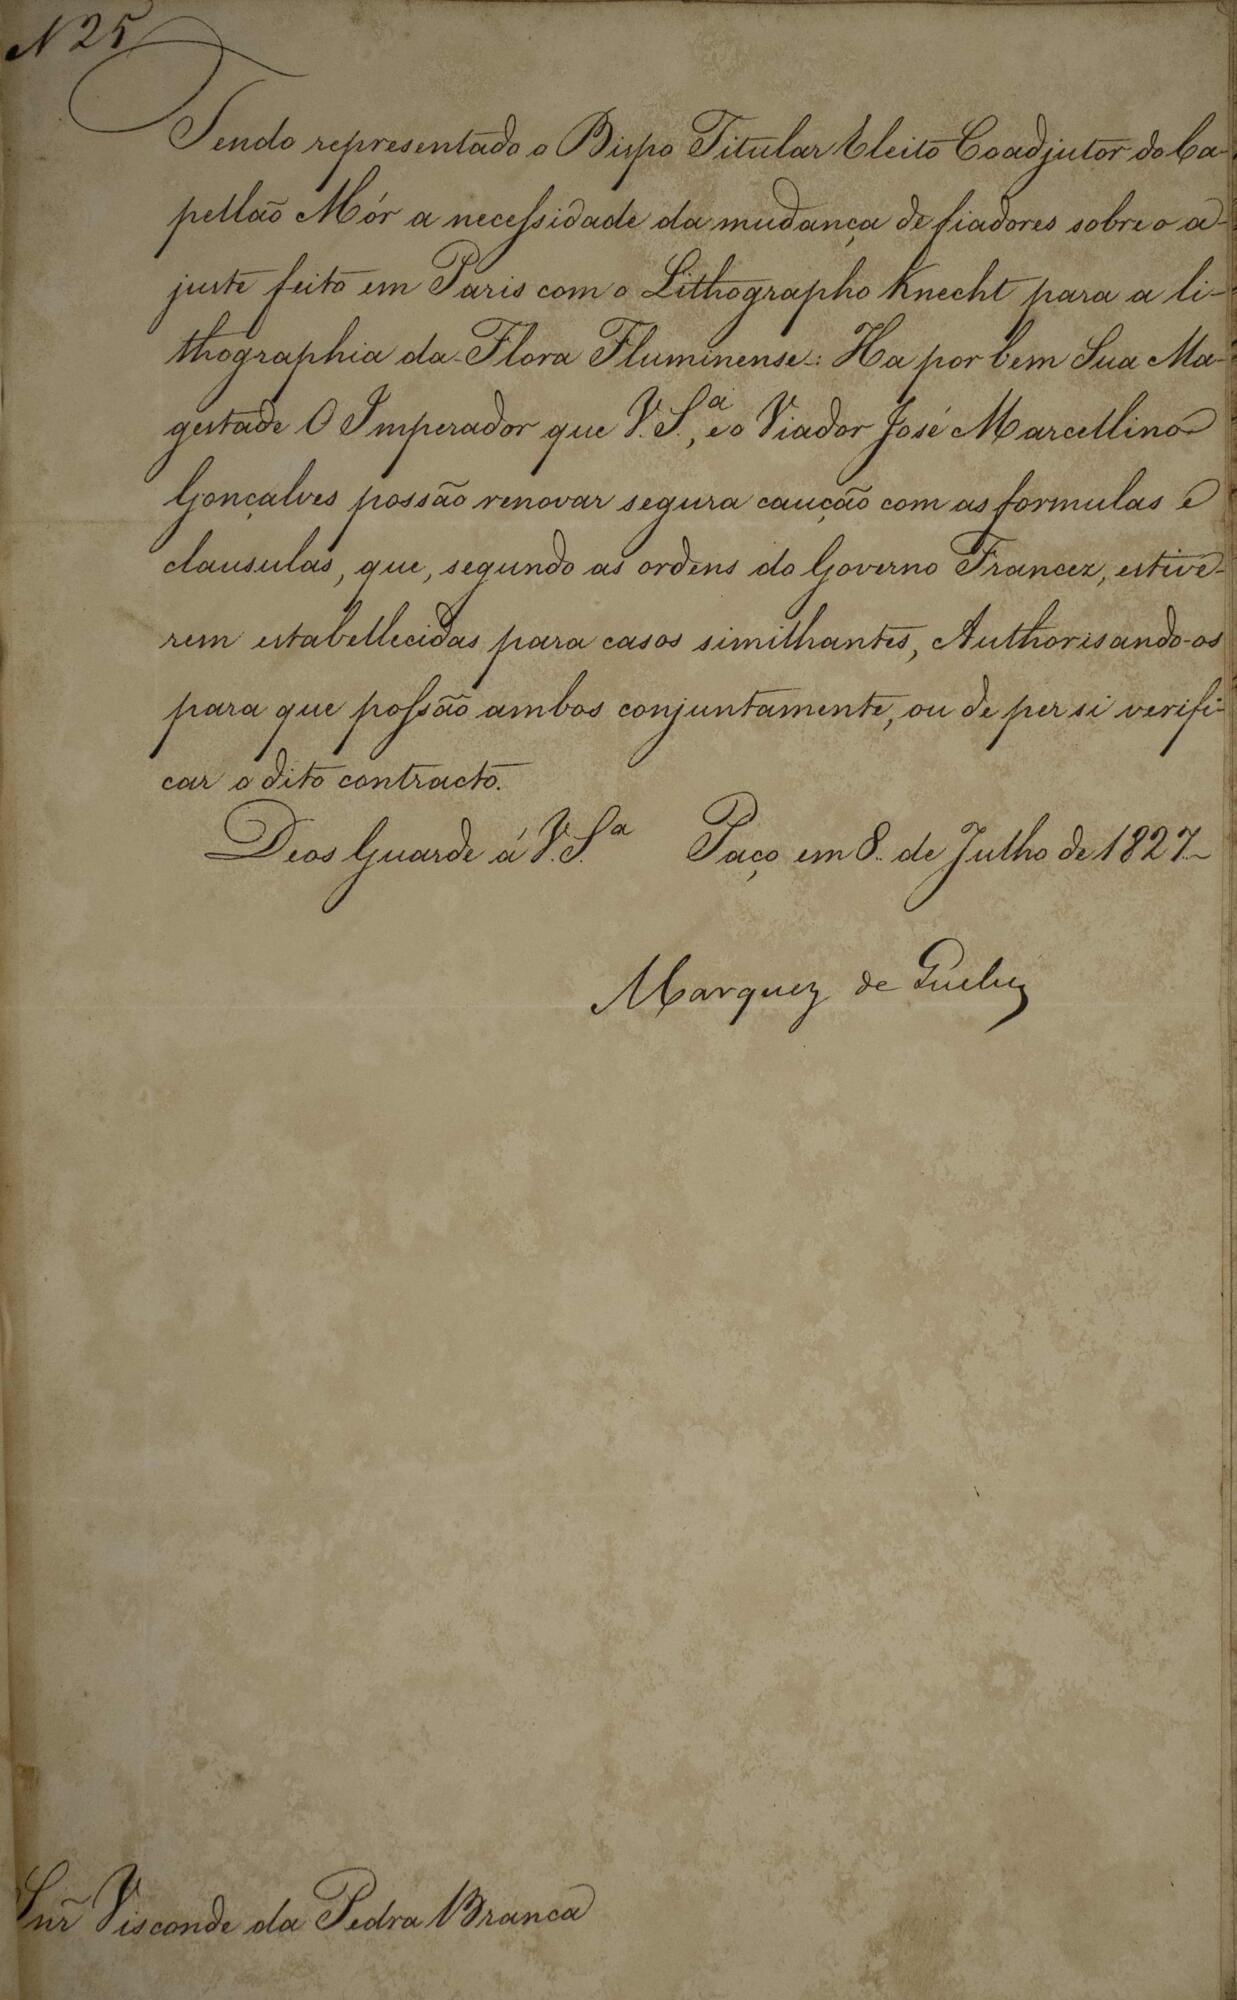 N 25
Tendo representado o Bispo Titular Eleito Coadjutor do Ca-
pellão Mór a necessidade da mudança de fiadores sobre o a-
juste feito em Paris com o Lithographo Knecht para a li-
thographia da Flora Fluminense: Ha por bem Sua Ma-
gestade O Imperador que V. S.ª, e o Viador José Marcellino
Gonçalves possão renovar segura caução com as formulas e
clausulas, que, segundo as ordens do Governo Francez, estive-
rem estabellecidas para casos similhantes, Authorisando-os
para que possão ambos conjuntamente, ou de per si verifi-
car o dito contracto.
Deos Guarde á V. S.ª Paço em 8 de Julho de 1827
Marquez de Queluz
Snr̃ Visconde da Pedra Branca